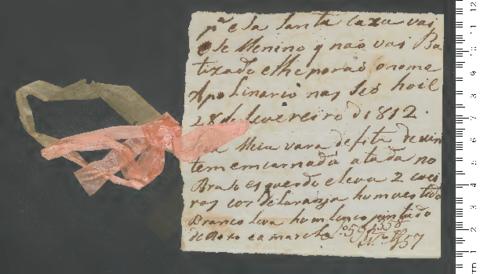 pª esta Santa Caza vai
este Menino q não vai Ba
tizado e lhe porão o nome
Apolinario nas seo hoie
28 de Fevereiro d 1812.
Meia vara de fita de vin
tem emcarnada atada no
Braso esquerdo e leva 2 coei
ros cor de laranja hum vestido
Branco leva hum lenso pintado
de Roxo e a marche